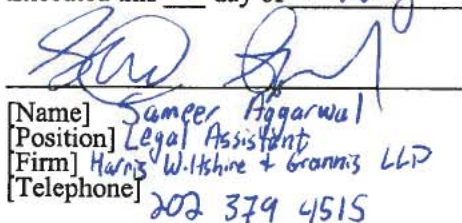 day of
[Name] Sameer Aggarwal
[Position] Legal Assistant
[Firm] Harris Wiltshire + Grannis LLP
[Telephone]
202 379 4515